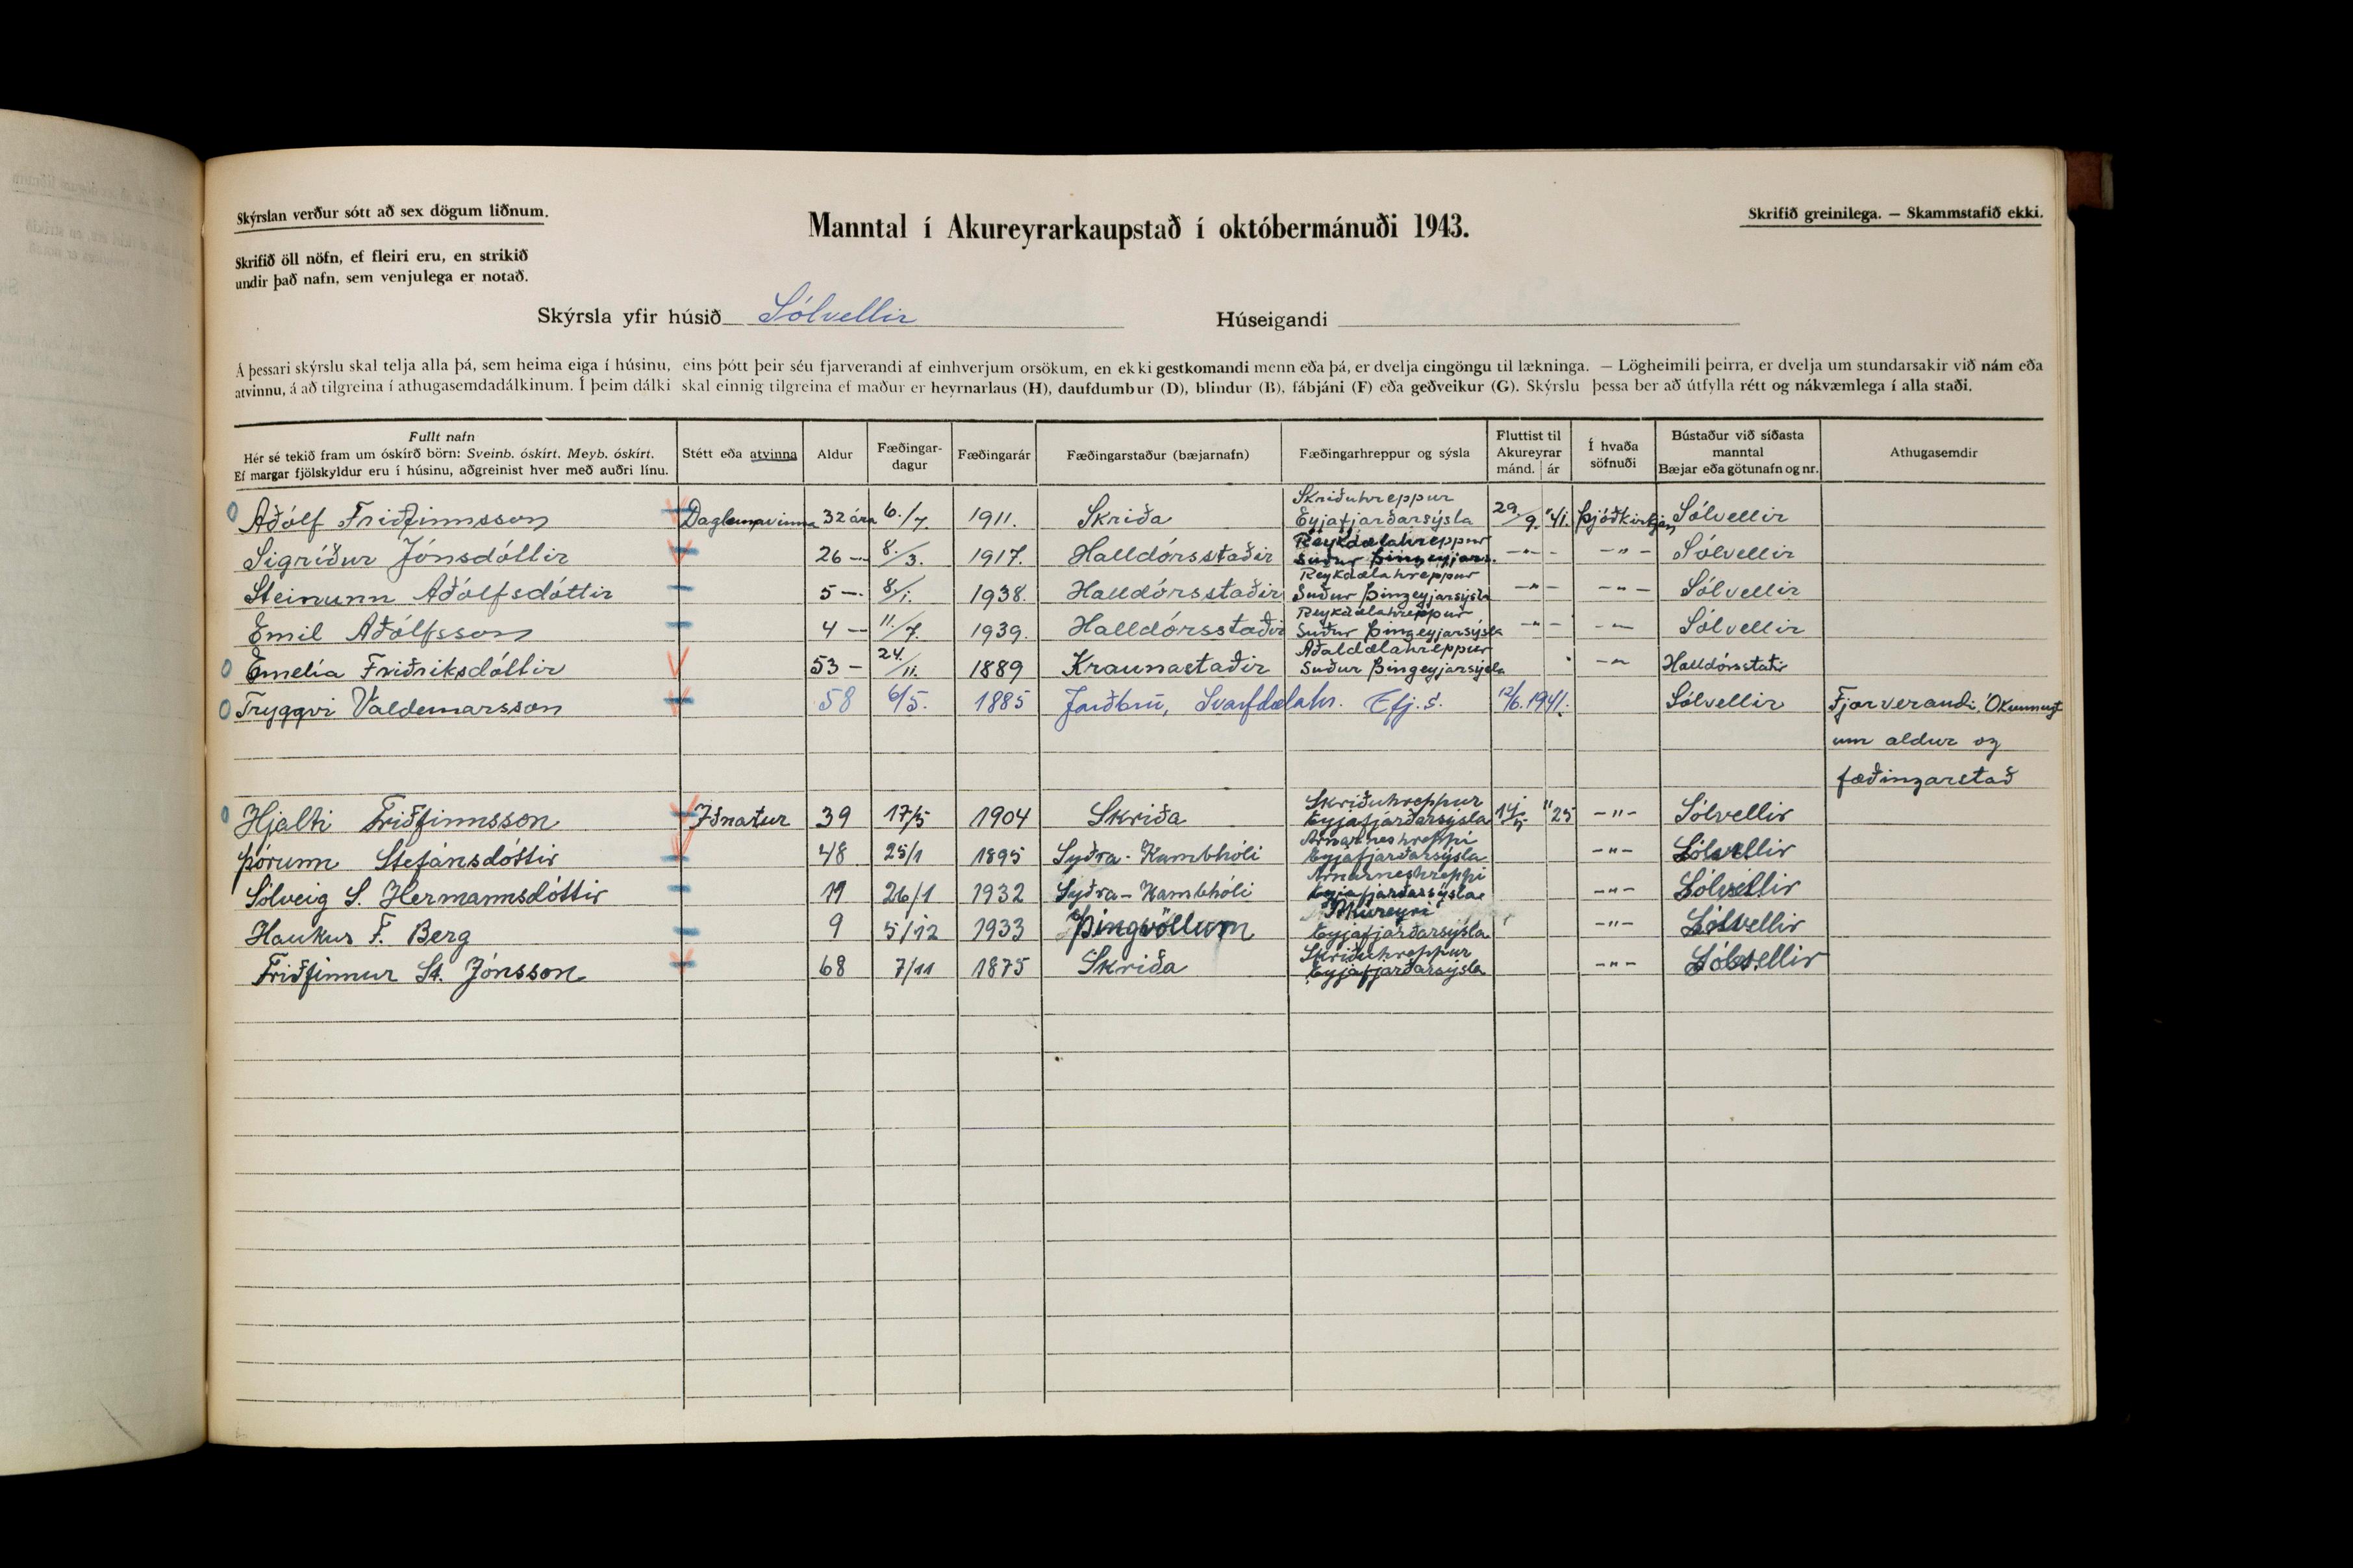 Skýrslan verður sótt að sex dögum liðnum.
Manntal í Akureyrarkaupstað í októbermánuði 1943.
Skrifið greinilega. — Skammstafið ekki.
Skrifið öll nöfn, ef fleiri eru, en strikið
undir það nafn, sem venjulega er notað.
Skýrsla yfir húsið Sólvellir Húseigandi
Á þessari skýrslu skal telja alla þá, sem heima eiga í húsinu, eins þótt þeir séu fjarverandi af einhverjum orsökum, en ekki gestkomandi menn eða þá, er dvelja eingöngu til lækninga. — Lögheimili þeirra, er dvelja um stundarsakir við nám eða
atvinnu, á að tilgreina í athugasemdadálkinum. Í þeim dálki skal einnig tilgreina ef maður er heyrnarlaus (H), daufdumbur (D), blindur (B), fábjáni (F) eða geðveikur (G). Skýrslu þessa ber að útfylla rétt og nákvæmlega í alla staði.
Fullt nafn
Hér sé tekið fram um óskírð börn: Sveinb. óskírt. Meyb. óskírt.
Ef margar fjölskyldur eru í húsinu, aðgreinist hver með auðri línu.
Stétt eða atvinna
Aldur
Fæðingar-
dagur
Fæðingarár
Fæðingarstaður (bæjarnafn)
Fæðingarhreppur og sýsla
Fluttist til
Akureyrar
mánd. ár
Í hvaða
söfnuði
Bústaður við síðasta
manntal
Bæjar eða götunafn og nr.
Athugasemdir
Skriðuhreppur
Aðólf Friðfinnsson Daglaunavinna 32 ára 6./7. 1911. Skriða Eyjafjarðarsýsla 29./9. '41. Þjóðkirkjan Sólvellir
Reykdælahreppur
Sigríður Jónsdóttir 26 — 8./3. 1917. Halldórsstaðir Suður Þingeyjars. —"— —"— Sólvellir
Reykdælahreppur
Steinunn Aðólfsdóttir 5 — 8/1. 1938. Halldórsstaðir Suður Þingeyjarsýsla —"— —"— Sólvellir
Reykdælahreppur
Emil Aðólfsson 4 — 11/7. 1939. Halldórsstaðir Suður Þingeyjarsýsla —"— —"— Sólvellir
Aðaldælahreppur
Emelía Friðriksdóttir 53 — 24./11. 1889 Kraunastaðir Suður Þingeyjarsýsla —"— Halldórsstaðir
Tryggvi Valdemarsson 58 6/5. 1885 Jarðbrú, Svarfdælahr. Efj.s. 12/6. 1941. Sólvellir Fjarverandi. Ókunnugt
um aldur og
fæðingarstað
Skriðuhreppur
Hjalti Friðfinnsson Iðnaður 39 17/5 1904 Skriða Eyjafjarðarsýsla 14/5 "25 —"— Sólvellir
Arnarneshreppi
Þórunn Stefánsdóttir 48 25/1 1895 Syðra-Kambhóli Eyjafjarðarsýsla —"— Sólvellir
Arnarneshreppi
Sólveig S. Hermannsdóttir 11 26/1 1932 Syðra-Kambhóli Eyjafjarðarsýsla —"— Sólvellir
Akureyri
Haukur F. Berg 9 5/12 1933 Þingvöllum Eyjafjarðarsýsla —"— Sólvellir
Skriðuhreppur
Friðfinnur St. Jónsson 68 7/11 1875 Skriða Eyjafjarðarsýsla —"— Sólvellir